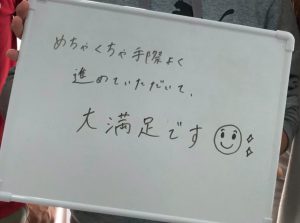 めちゃくちゃ手際よく
進めていただいて、
大満足です